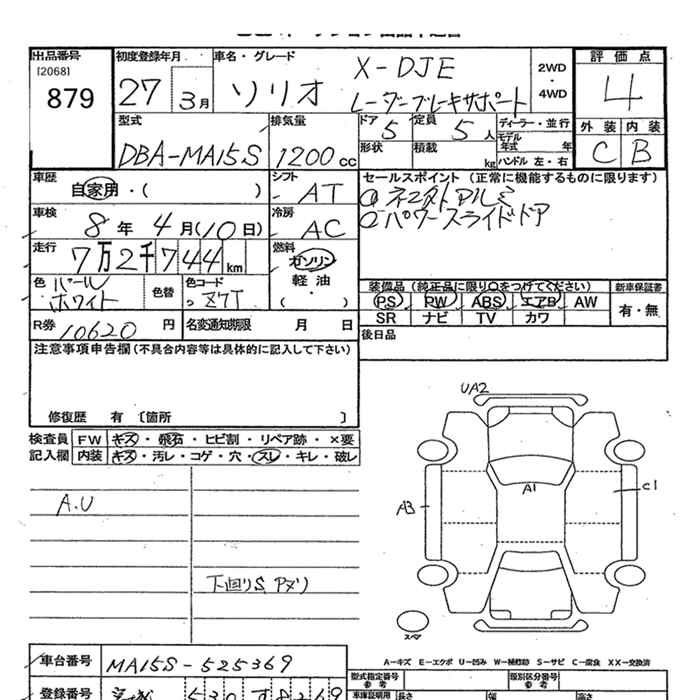 出品番号
[2068]
879
初度登録年月
27 3月
車名・グレード
ソリオ
X-DJE
レーダーブレーキサポート
2WD
・
4WD
評価点
4
外装 内装
C B
型式
DBA-MA15S
排気量
1200cc
ドア 5
定員 5人
ディーラー・並行
モデル
年式 年
形状
積載 kg
ハンドル 左・右
車歴
自家用・( )
シフト
AT
セールスポイント(正常に機能するものに限ります)
パワースライドドア
車検
8年 4月(10日)
冷房
AC
走行
7万2千744km
燃料
ガソリン
軽油
・
( )
色 パール
ホワイト
色替
色コード
Z7T
装備品(純正品に限り○をつけてください)
PS PW ABS エアB AW
SR ナビ TV カワ
新車保証書
有・無
R券 10620円
名変通知期限 月 日
後日品
注意事項申告欄(不具合内容等は具体的に記入して下さい)
修復歴 有 〔箇所 〕
検査員
記入欄
FW キズ・飛石・ヒビ割・リペア跡・×要
内装 キズ・汚レ・コゲ・穴・スレ・キレ・破レ
A.U
下回りS, アブリ
UA2
A1
A3
C1
スマ
車台番号
MA15S-525369
A-キズ E-エクボ U-凹み W-補修跡 S-サビ C-腐食 XX-交換済
型式指定番号
参考
類別区分番号
参考
登録番号
車庫証明用 長さ 幅 高さ